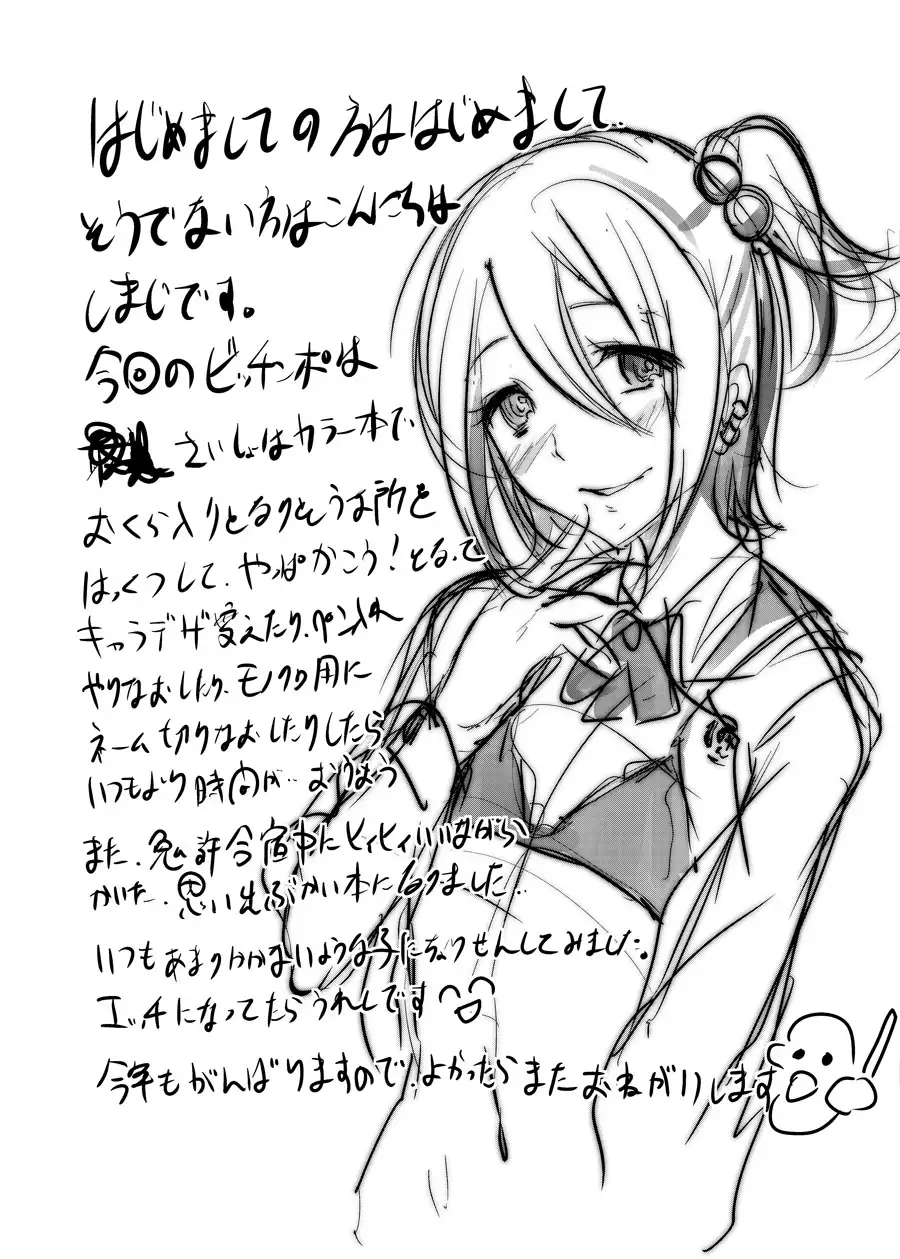 はじめましての方ははじめまして..
そうでない方はこんにちは
しまじです。
今回のビッチンポは
さいしょはカラー本で
おくら入りとなりそうな所を
はっくつして、やっぱかこう!となって
キャラデザ変えたり、ペン入れ
やりなおしたり、モノクロ用に
ネーム切りなおしたりしたら
いつもより時間が..
また、免許合宿中にヒィヒィいいながら
かいた、思い出ぶかい本になりました..
いつもあまりかかないような子にちょうせんしてみました。
エッチになってたらうれしいです
今年もがんばりますので、よかったらまたおねがいします